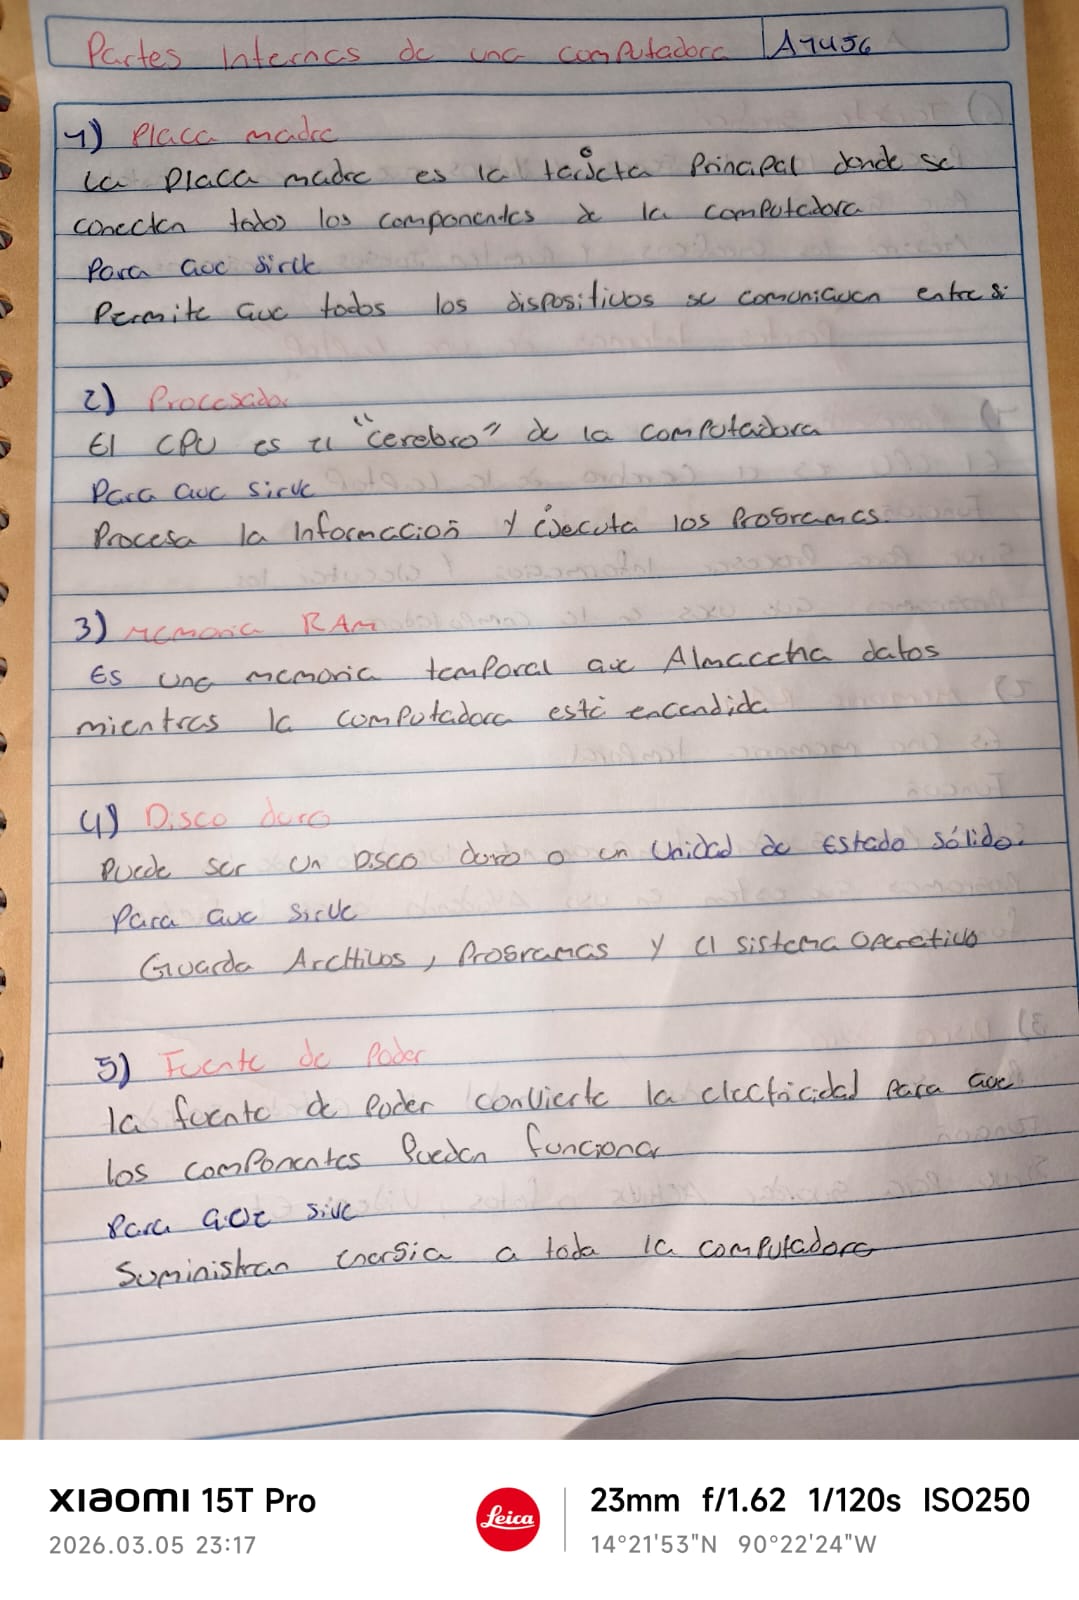 Partes Internas de una computadora
1) Placa madre
La Placa madre es la tarjeta Principal donde se
conectan todos los componentes de la computadora
Para que sirve
Permite que todos los dispositivos se comuniquen entre si
2) Procesador
El CPU es el "cerebro" de la computadora
Para que sirve
Procesa la Información y ejecuta los Programas.
3) Memoria RAM
Es una memoria temporal que Almacena datos
mientras la computadora está encendida
4) Disco duro
Puede ser un Disco duro o un Unidad de Estado Sólido.
Para que sirve
Guarda Archivos, Programas y el sistema Operativo
5) Fuente de Poder
la fuente de Poder convierte la electricidad Para que
los componentes Pueden funcionar
Para que sive
Suministran energia a toda la computadora
XIAOMI 15T Pro
2026.03.05 23:17
Leica
23mm f/1.62 1/120s ISO250
14°21'53"N 90°22'24"W